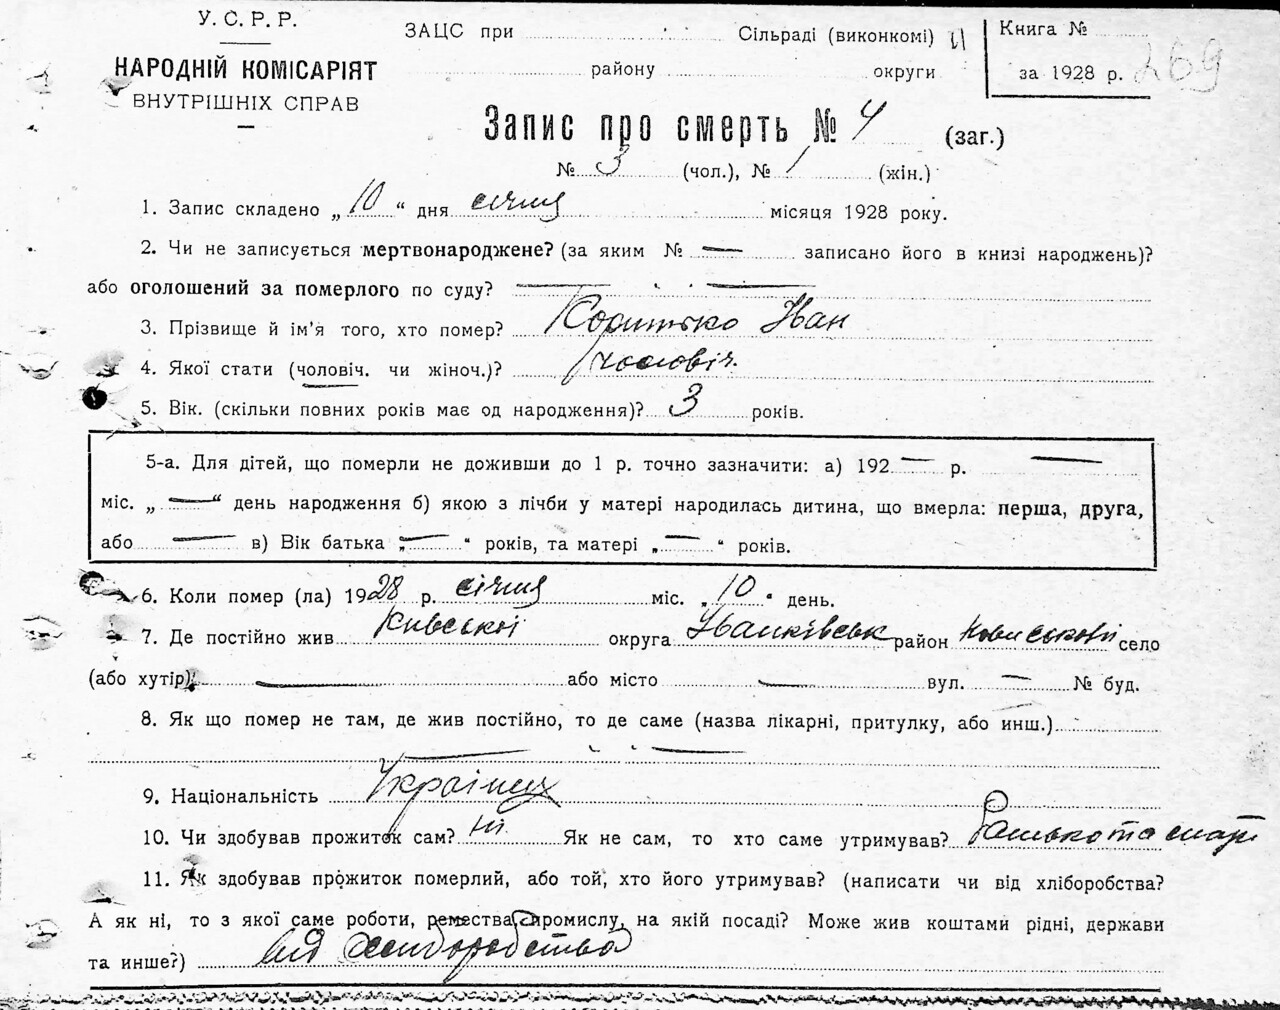 У. С. Р. Р.
НАРОДНІЙ КОМІСАРІЯТ
ВНУТРІШНІХ СПРАВ
ЗАЦС при Сільраді (виконкомі)
району округи
Книга №
за 1928 р. 269
Запис про смерть № 4 (заг.)
№ 3 (чол.), № 1 (жін.)
1. Запис складено „ 10 “ дня січня місяця 1928 року.
2. Чи не записується мертвонароджене? (за яким № — записано його в книзі народжень)?
або оголошений за померлого по суду? — " —
3. Прізвище й ім'я того, хто помер? Коритько Іван
4. Якої стати (чоловіч. чи жіноч.)? чоловіч.
5. Вік. (скільки повних років має од народження)? 3 років.
5-а. Для дітей, що померли не доживши до 1 р. точно зазначити: а) 192 — р. —
міс. „ — “ день народження б) якою з лічби у матері народилась дитина, що вмерла: перша, друга,
або — в) Вік батька „ — “ років, та матері „ — “ років.
6. Коли помер (ла) 1928 р. січня міс. „ 10 “ день.
7. Де постійно жив Київської округа Іванківськ район село
(або хутір) — або місто — вул. — № буд.
8. Як що помер не там, де жив постійно, то де саме (назва лікарні, притулку, або инш.)
— " —
9. Національність Українец
10. Чи здобував прожиток сам? Ні. Як не сам, то хто саме утримував? Батько та мати
11. Як здобував прожиток померлий, або той, хто його утримував? (написати чи від хліборобства?
А як ні, то з якої саме роботи, ремества, промислу, на якій посаді? Може жив коштами рідні, держави
та инше?) від хліборобства